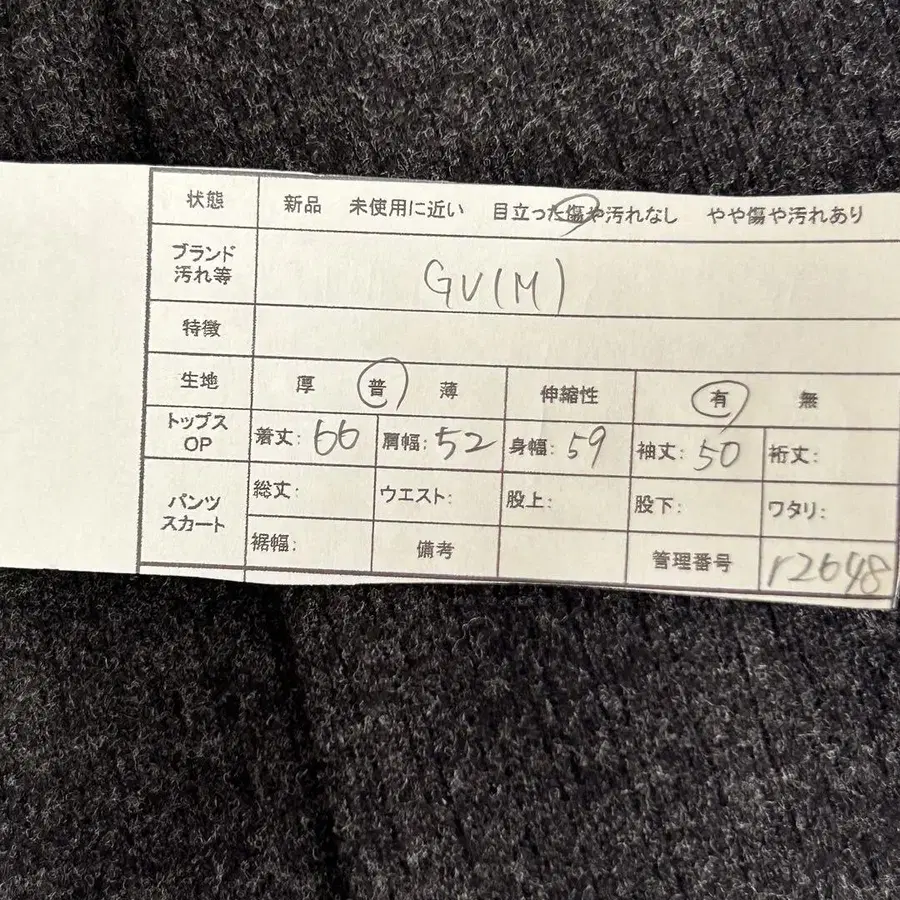 状態 新品 未使用に近い 目立った傷や汚れなし やや傷や汚れあり
ブランド
汚れ等
GU(M)
特徴
生地 厚 普 薄 伸縮性 有 無
トップス
OP
着丈: 66 肩幅: 52 身幅: 59 袖丈: 50 裄丈:
パンツ
スカート
総丈: ウエスト: 股上: 股下: ワタリ:
裾幅: 備考 管理番号 r2648